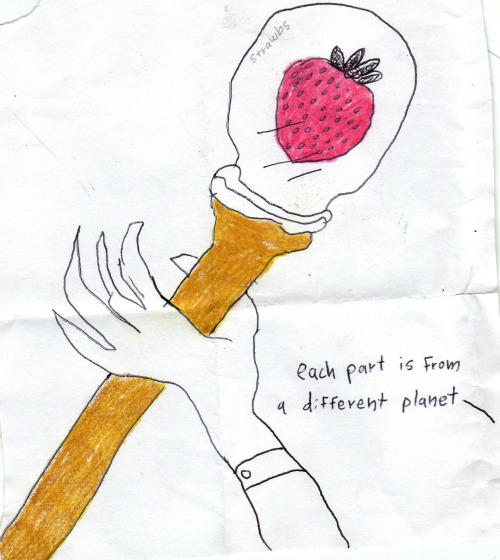 strawbs
each part is from
a different planet